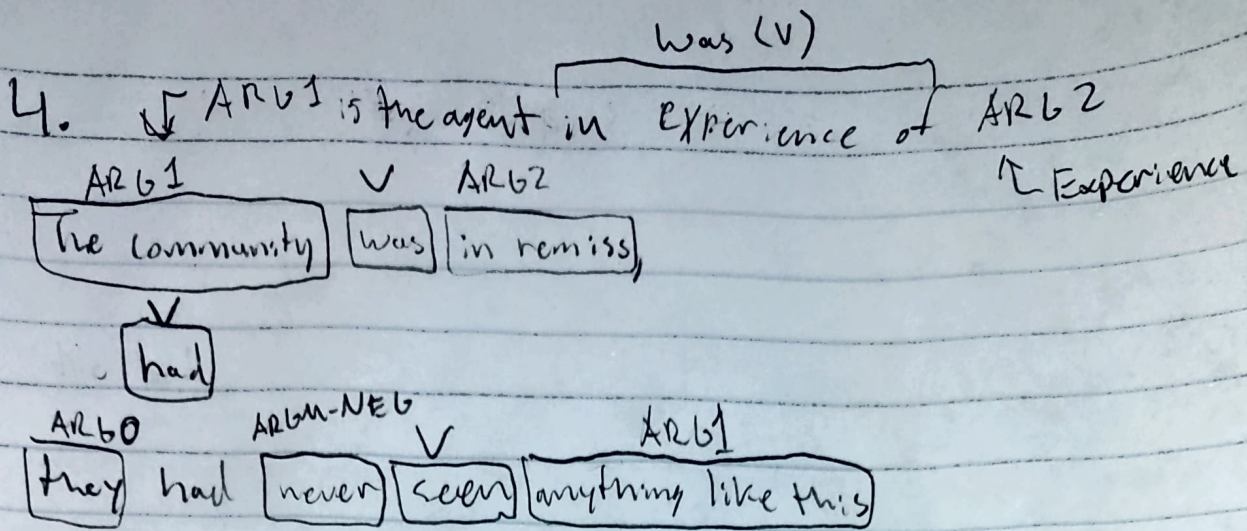 was (V)
4. ARG1 is the agent in experience of ARG2
Experience
ARG1 V ARG2
The community was in remiss,
V
had
ARG0 ARGM-NEG V ARG1
they had never seen anything like this